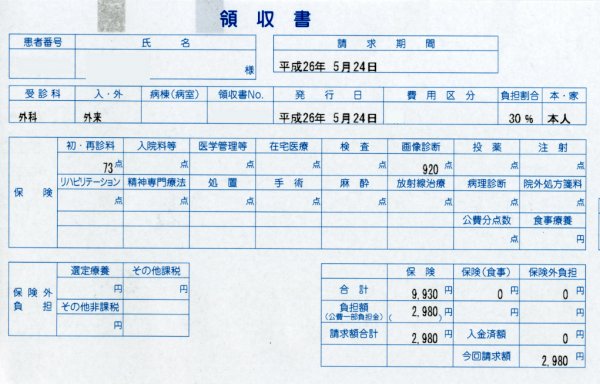 領収書
患者番号 氏名 請求期間
様 平成26年 5月24日
受診科 入・外 病棟(病室) 領収書No. 発行日 費用区分 負担割合 本・家
外科 外来 平成26年 5月24日 30% 本人
保険
初・再診料 入院料等 医学管理等 在宅医療 検査 画像診断 投薬 注射
73点 点 点 点 点 920点 点 点
リハビリテーション 精神専門療法 処置 手術 麻酔 放射線治療 病理診断 院外処方箋料
点 点 点 点 点 点 点 点
公費分点数 食事療養
点 円
保険外負担
選定療養 その他課税
円 円
その他非課税
円
保険 保険(食事) 保険外負担
合計 9,930円 0円 0円
負担額 2,980円
(公費一部負担金) ( )
請求額合計 2,980円 入金済額 0円
今回請求額 2,980円